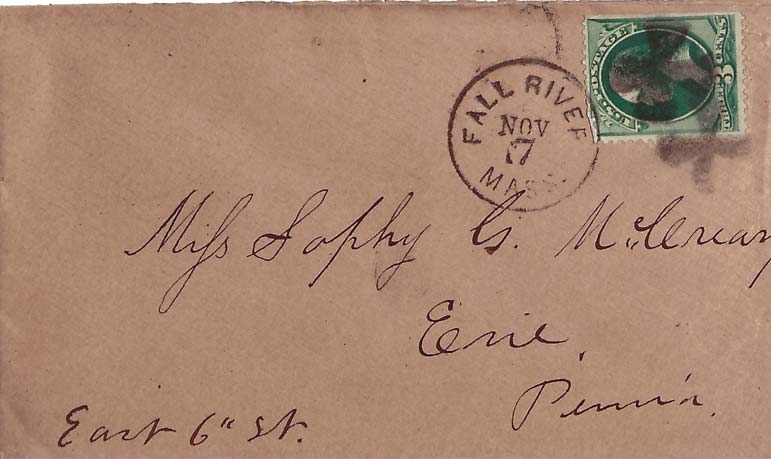 U.S. POSTAGE
3 CENTS
FALL RIVER
NOV
17
MASS.
Miss Sophy G. McCreary
Erie,
Penn'a.
East 6" St.